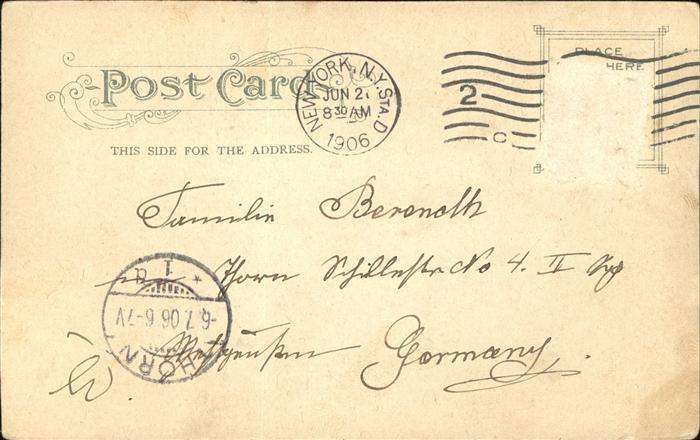 Post Card
NEW YORK, N.Y. STA. D
JUN 21
8 30 AM
1906
2
C
PLACE
HERE
THIS SIDE FOR THE ADDRESS.
Familie Berendt
Thorn Schillerstr No 4. II
Westpreußen Germany.
THORN
1 a
*
-6.7.06.6-7V